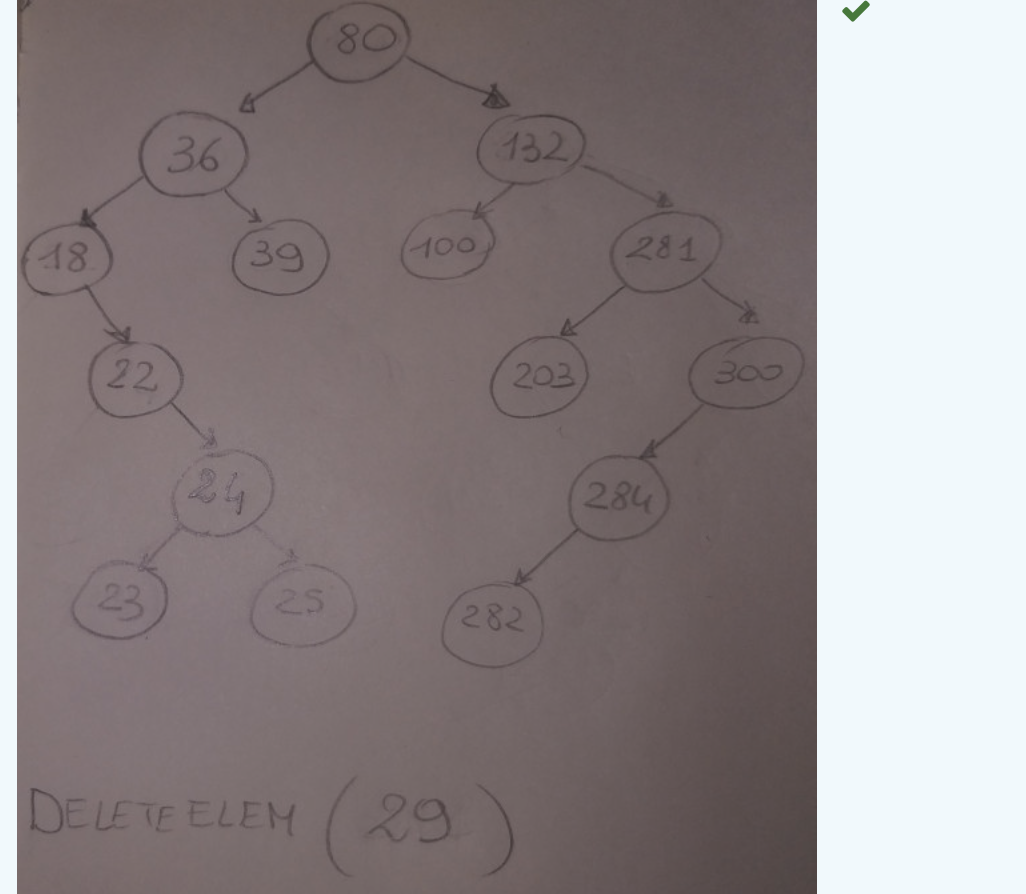 80
36 132
18 39 100 281
22 203 300
24 284
23 25 282
DELETE ELEM (29)